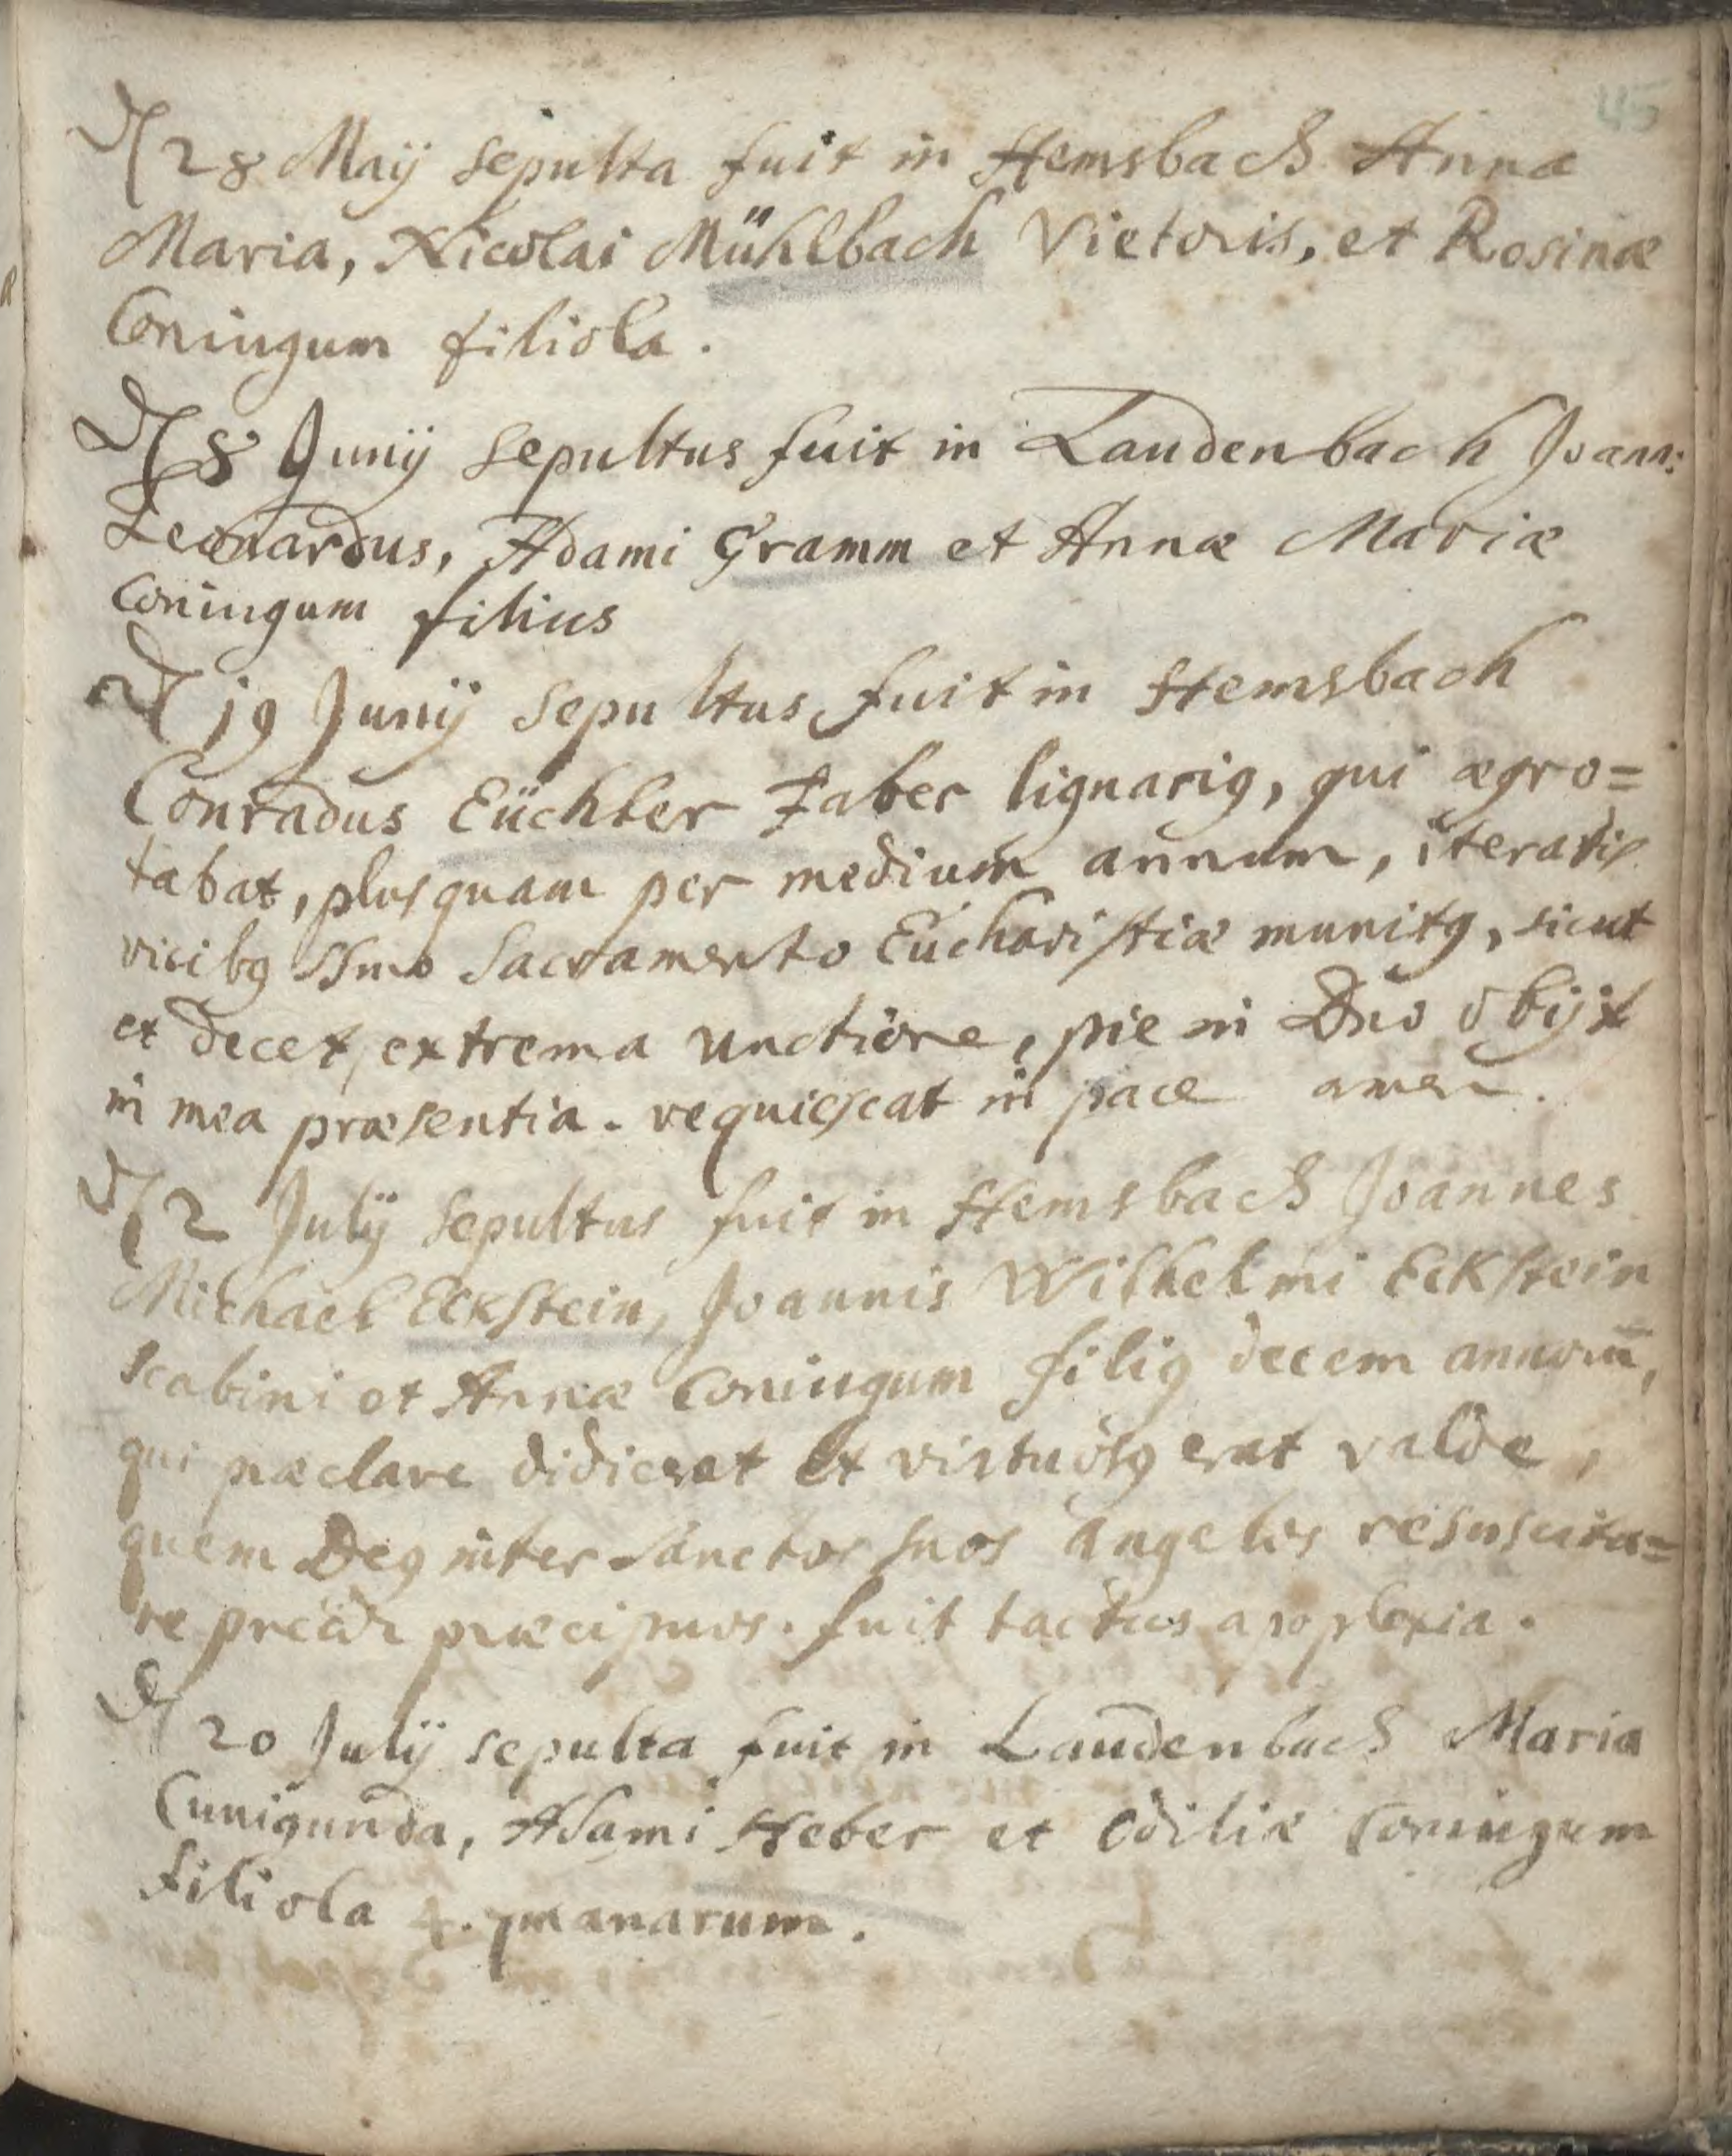 45
28 Maÿ sepulta fuit in Hemsbach Anna
Maria, Nicolai Mühlbach Vietoris, et Rosinæ
Coniugum filiola.
8 Junÿ sepultus fuit in Laudenbach Joann:
Leonardus, Adami Gramm et Annæ Mariæ
Coniugum filius
j9 Junÿ sepultus fuit in Hemsbach
Conradus Eüchler Faber lignariꝰ, qui ægro=
tabat, plusquam per medium annum, iteratis
vicibꝰ SSmo Sacramento Eucharistiæ munitꝰ, sicut
et decet, extrema unctione, pie in Dno obijt
in mea præsentia. requiescat in pace amen.
2 Julÿ sepultus fuit in Hemsbach Joannes
Michael Eckstein, Joannis Wilhelmi Eckstein
scabini et Annæ Coniugum filiꝰ decem annorū,
qui præclare didicerat et virtuosꝰ erat valde,
quem Deꝰ inter sanctos suos angelos resuscita=
re præcipuos. fuit tactus apoplexia.
20 Julÿ sepulta fuit in Laudenbach Maria
Cunigunda, Adami Heber et Odiliæ Coniugum
filiola 4. 7manarum.